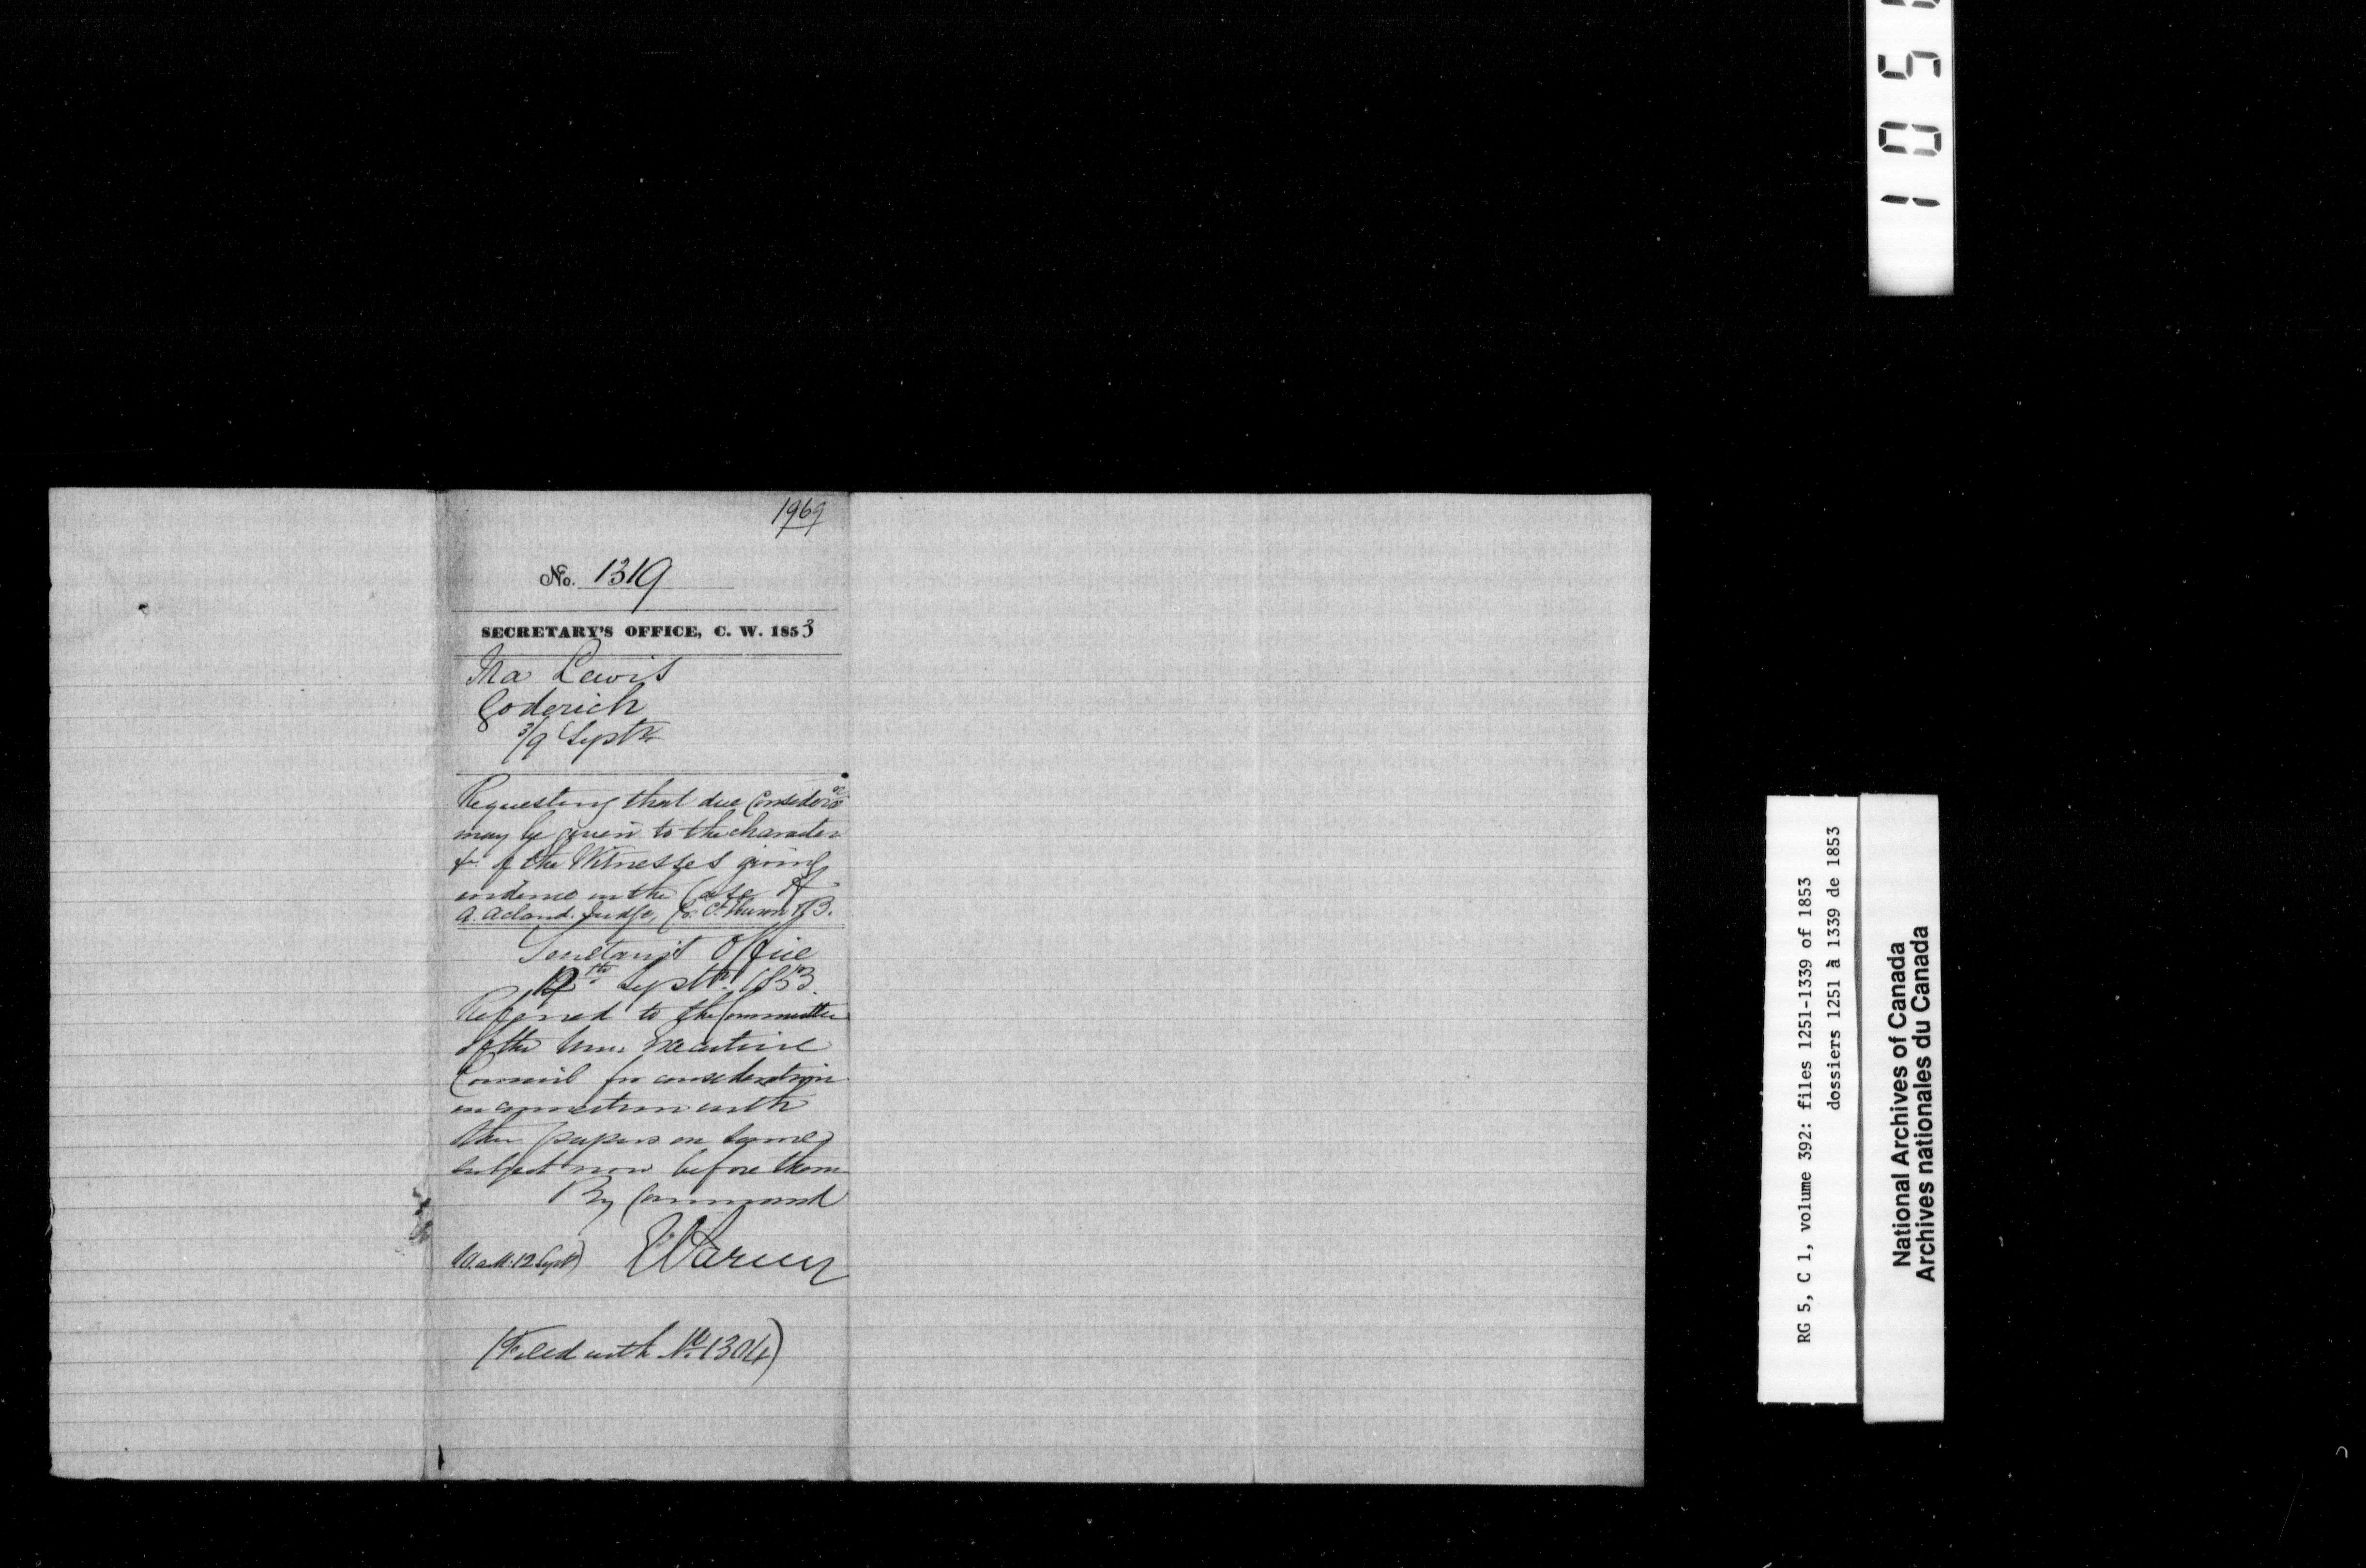 1969
No. 1319
SECRETARY'S OFFICE, C. W. 1853
Ira Lewis
Goderich
3/9 Septr
Requesting that due Consideron
may be given to the character
&c of the Witnesses giving
evidence in the Case of
A. Acland. Judge, Co. Ct. Huron & B.
Secretary's Office
12th Septr. 1853.
Referred to the Committee
of the Hon. Executive
Council for consideration
in connection with
other papers on same
subject now before them
By Command
12 Sept)
(Filed with No 1304)
1 0 5
RG 5, C 1, volume 392: files 1251-1339 of 1853
dossiers 1251 à 1339 de 1853
National Archives of Canada
Archives nationales du Canada